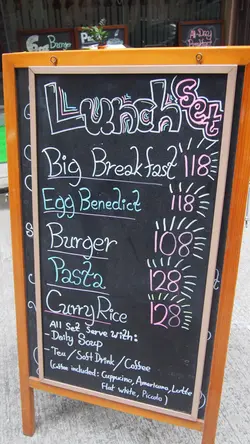 Burger
All-Day
Breakfast
Lunch Set
Big Breakfast 118
Egg Benedict 118
Burger 108
Pasta 128
Curry Rice 128
All Set Serve With:
- Daily Soup
- Tea / Soft Drink / Coffee
(Coffee included: Cuppucino, Americano, Lattle
Flat white, Piccolo)